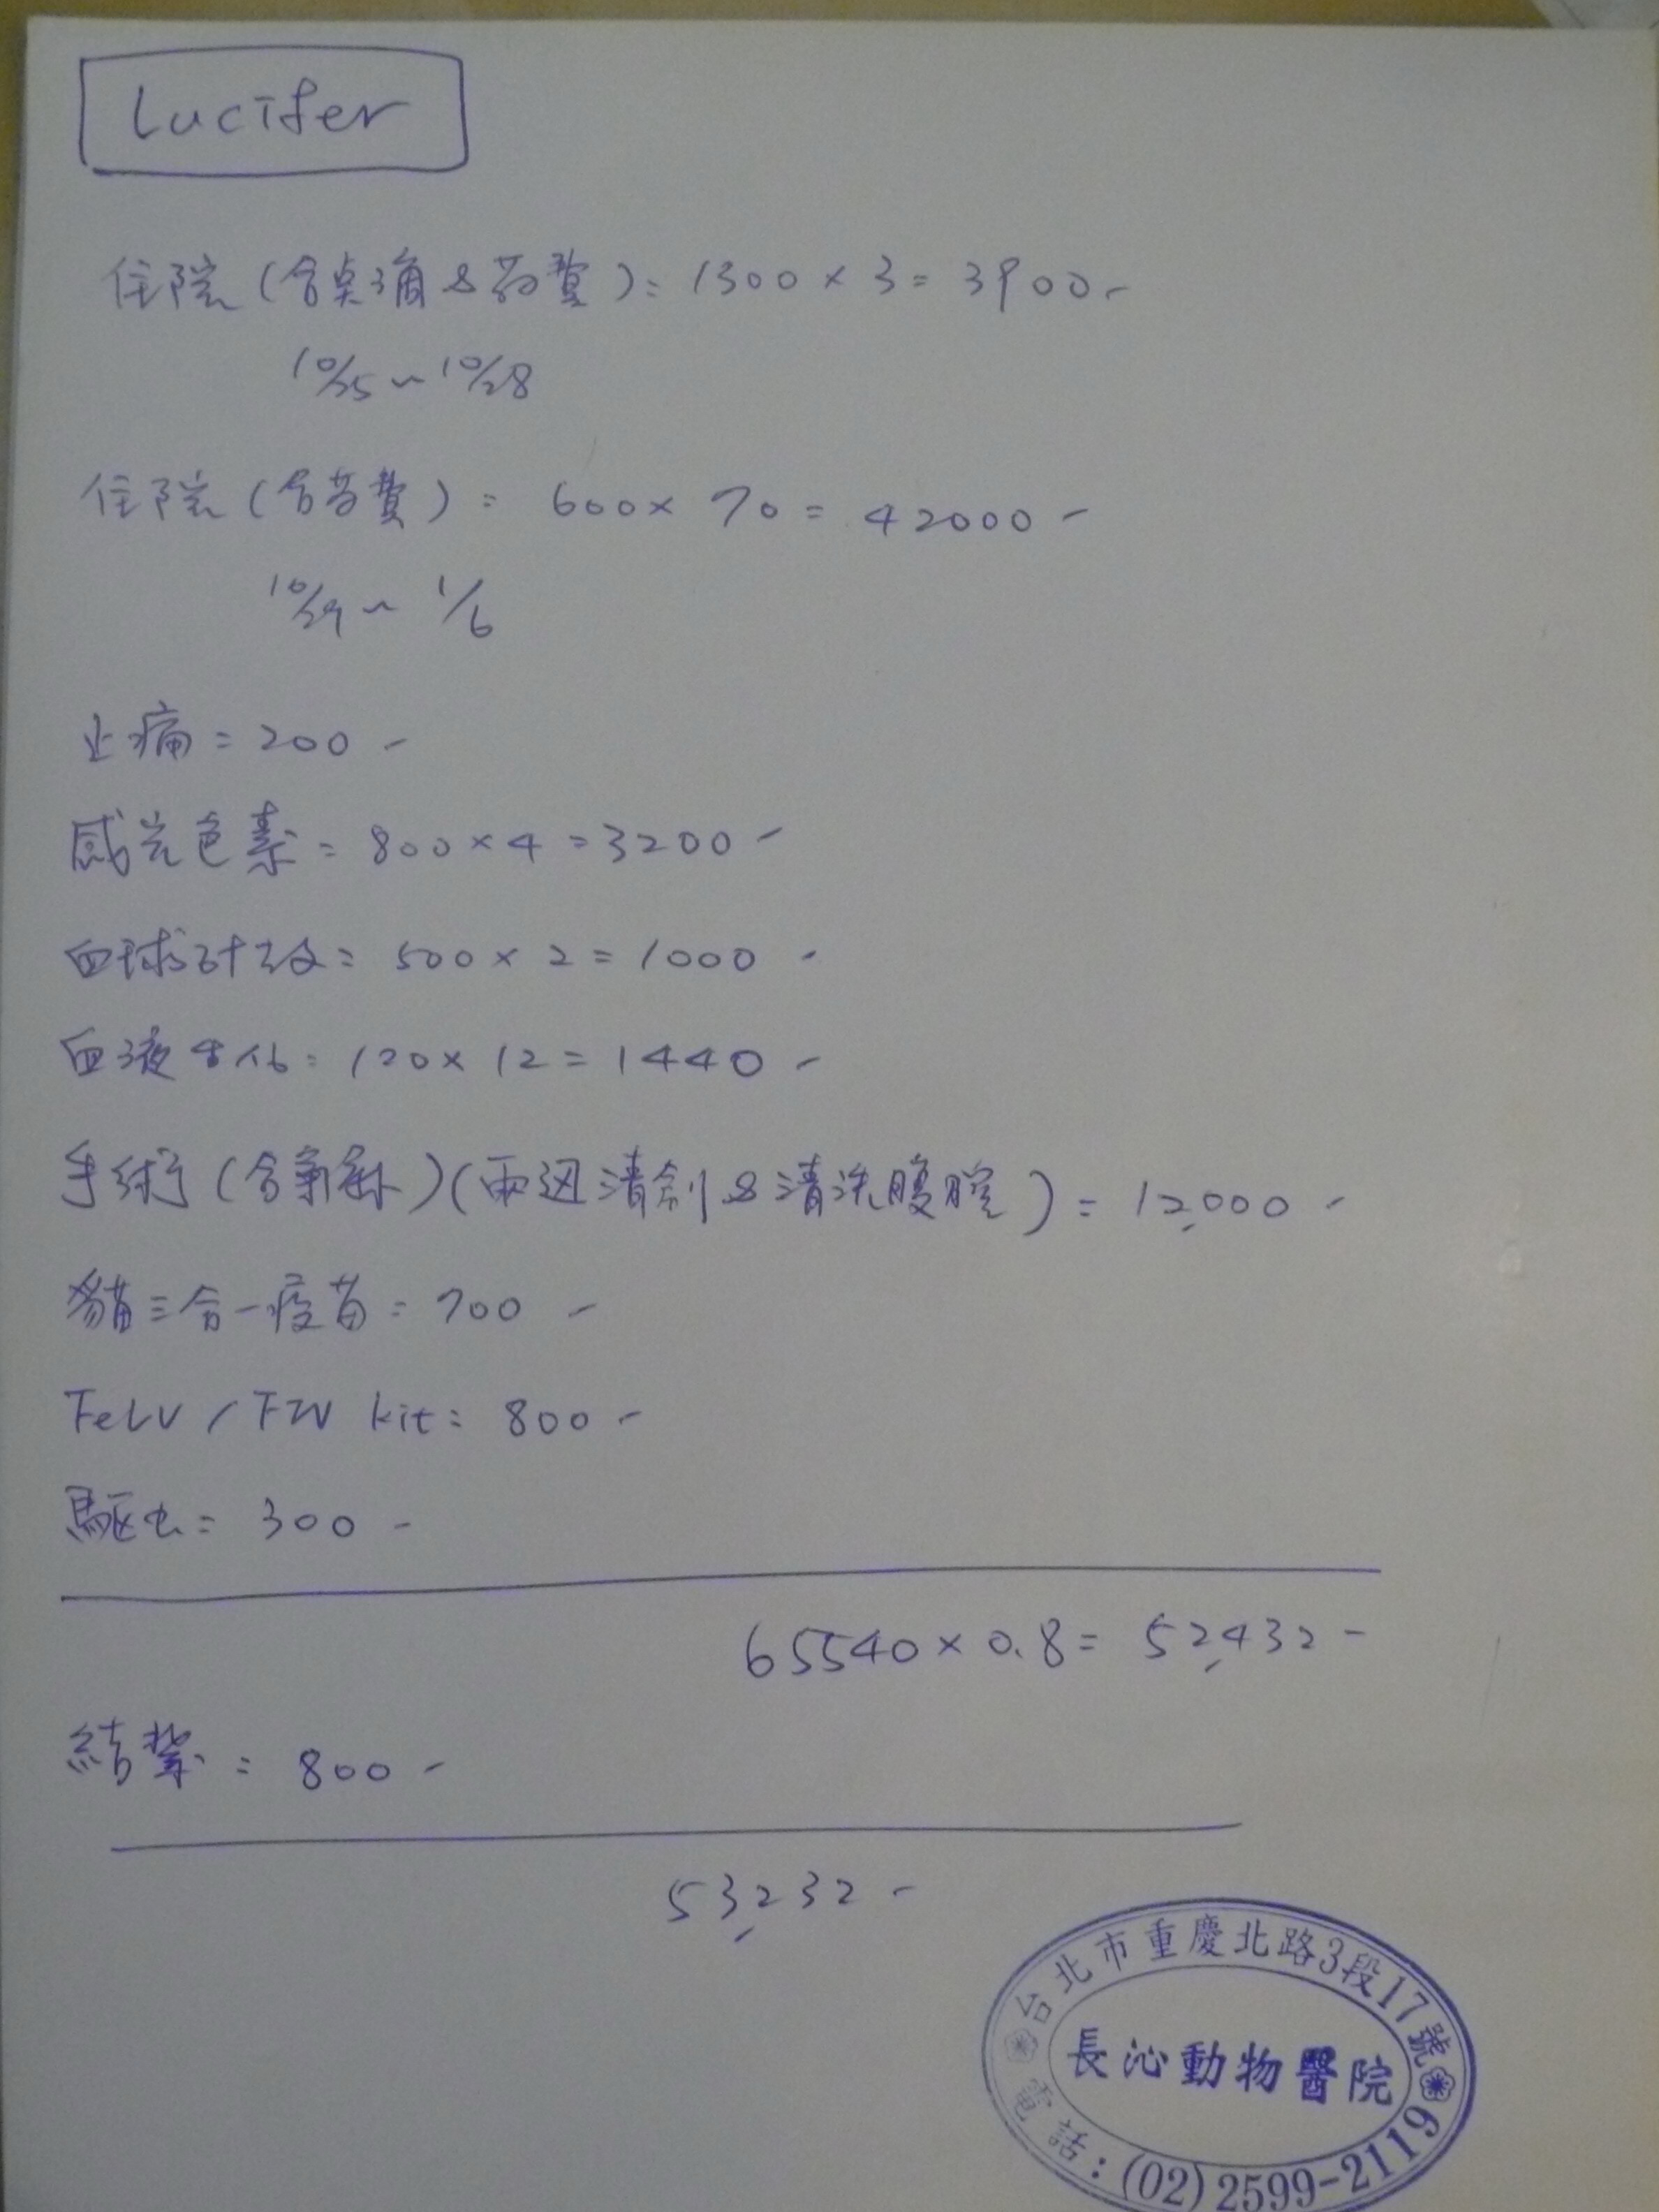 Lucifer
住院(含点滴&葯費): 1300 × 3 = 3900-
10/25 ~ 10/28
住院(含葯費): 600 × 70 = 42000-
10/29 ~ 1/6
止痛 = 200-
感光色素 = 800 × 4 = 3200-
血球計数 = 500 × 2 = 1000-
血液生化: 120 × 12 = 1440-
手術(含麻醉)(兩週清創&清洗腹腔) = 12,000-
貓三合一疫苗 = 700-
FeLV / FIV kit: 800-
驅虫 = 300-
65540 × 0.8 = 52,432-
結紮 = 800-
53,232-
台北市重慶北路3段17號
長沁動物醫院
電話:(02)2599-2119